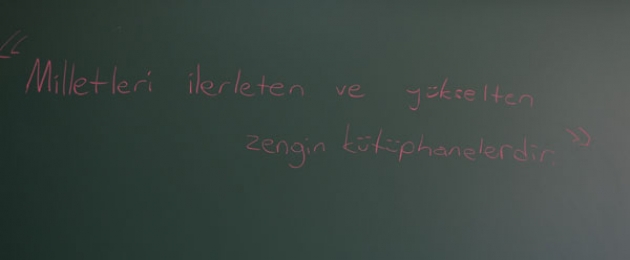 “Milletleri ilerleten ve yükselten
zengin kütüphanelerdir.”